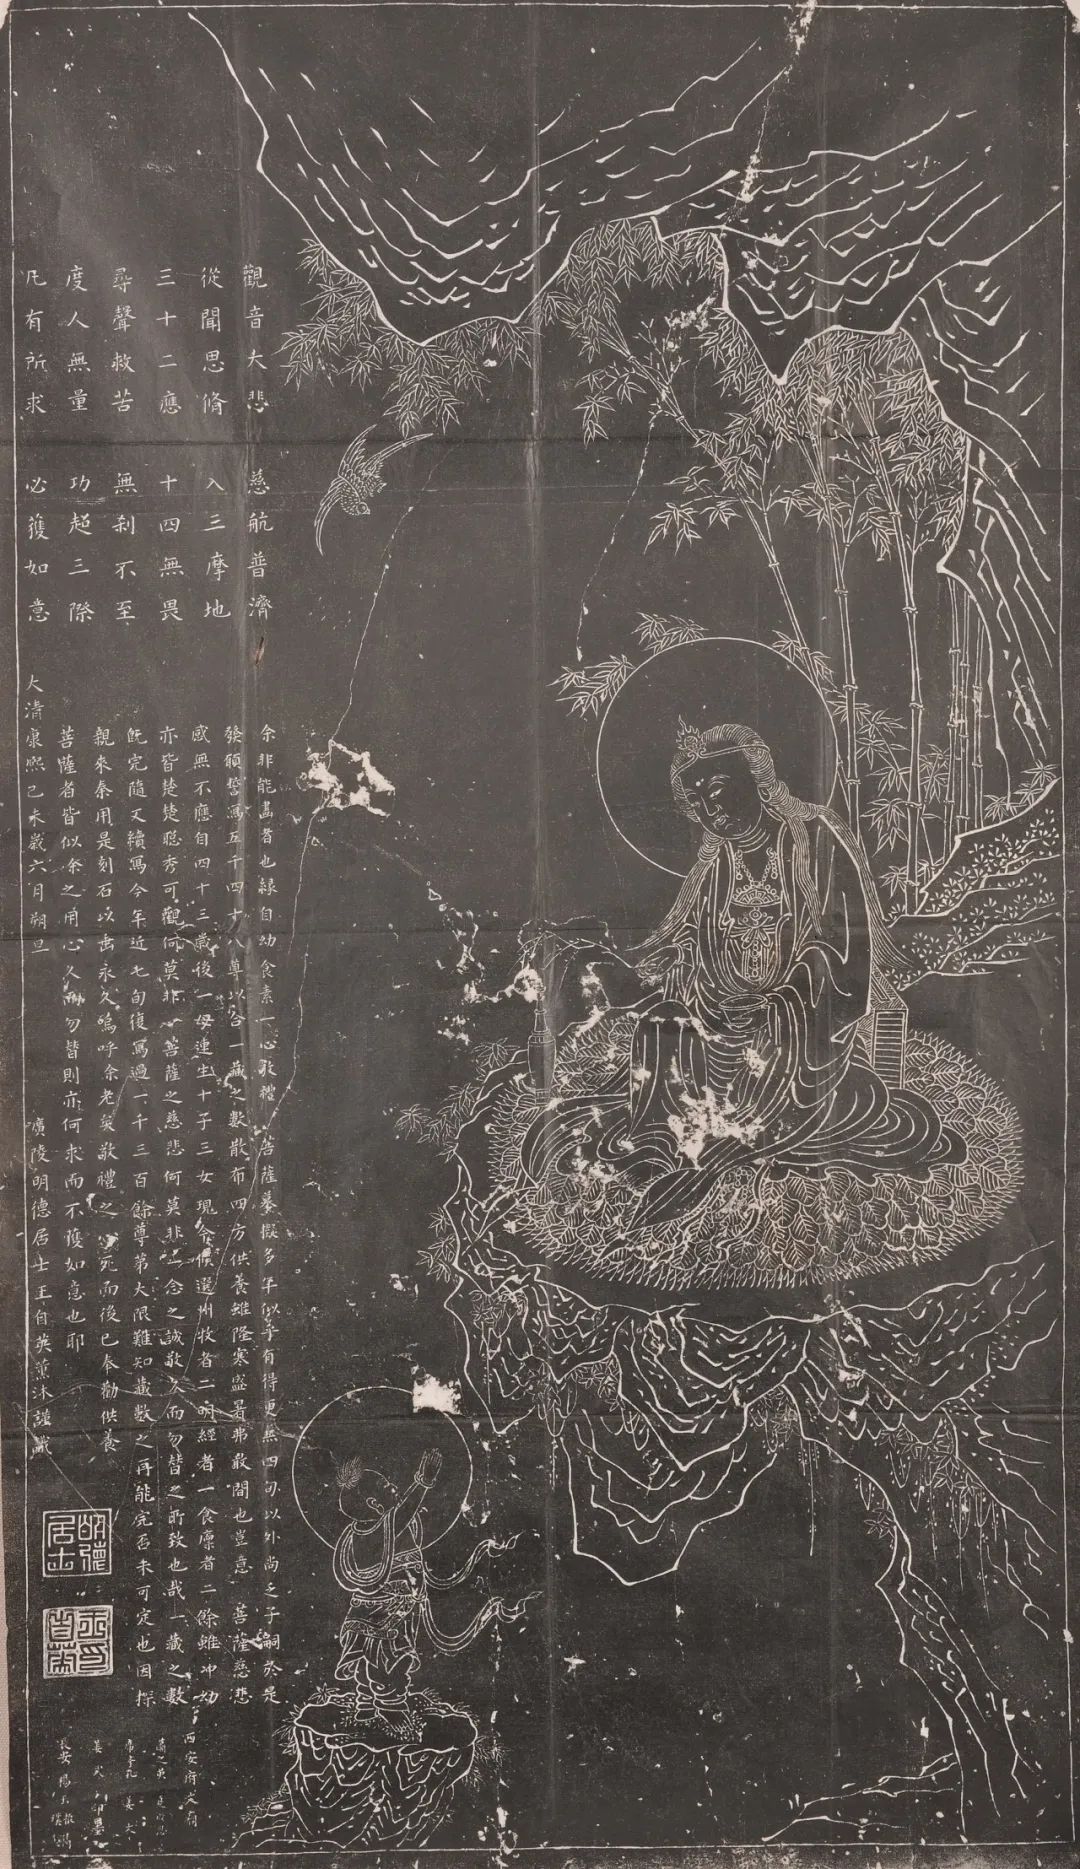 觀音大悲 慈航普濟
從聞思脩 入三摩地
三十二應 十四無畏
尋聲救苦 無刹不至
度人無量 功超三際
凡有所求 必獲如意
余非能畵者也緣自幼食素一心敬禮 菩薩摹擬多年似乎有得更無四旬以外尚乏子嗣於是
發願誓寫五千四十八尊以合一藏之數散布四方供養雖隆寒盛暑弗敢間也豈意 菩薩慈悲
感無不應自四十三歲後一母連生十子三女現今候選州牧者二明經者一食廩者二餘雖冲幼
亦皆楚楚聰秀可觀何莫非 菩薩之慈悲何莫非一念之誠敬久而勿替之所致也哉一藏之數
旣完隨又續寫今年近七旬復寫過一千三百餘尊第大限難知藏數之再能完否未可定也因採
親來秦用是刻石以垂永久嗚呼余老矣敬禮之 死而後已奉勸供養
菩薩者皆似余之用心久而勿替則亦何求而不獲如意也耶
大清康熙己未歲六月朔旦 廣陵明德居士王自英薰沐謹識
明德居士
王自英
西安府
長安